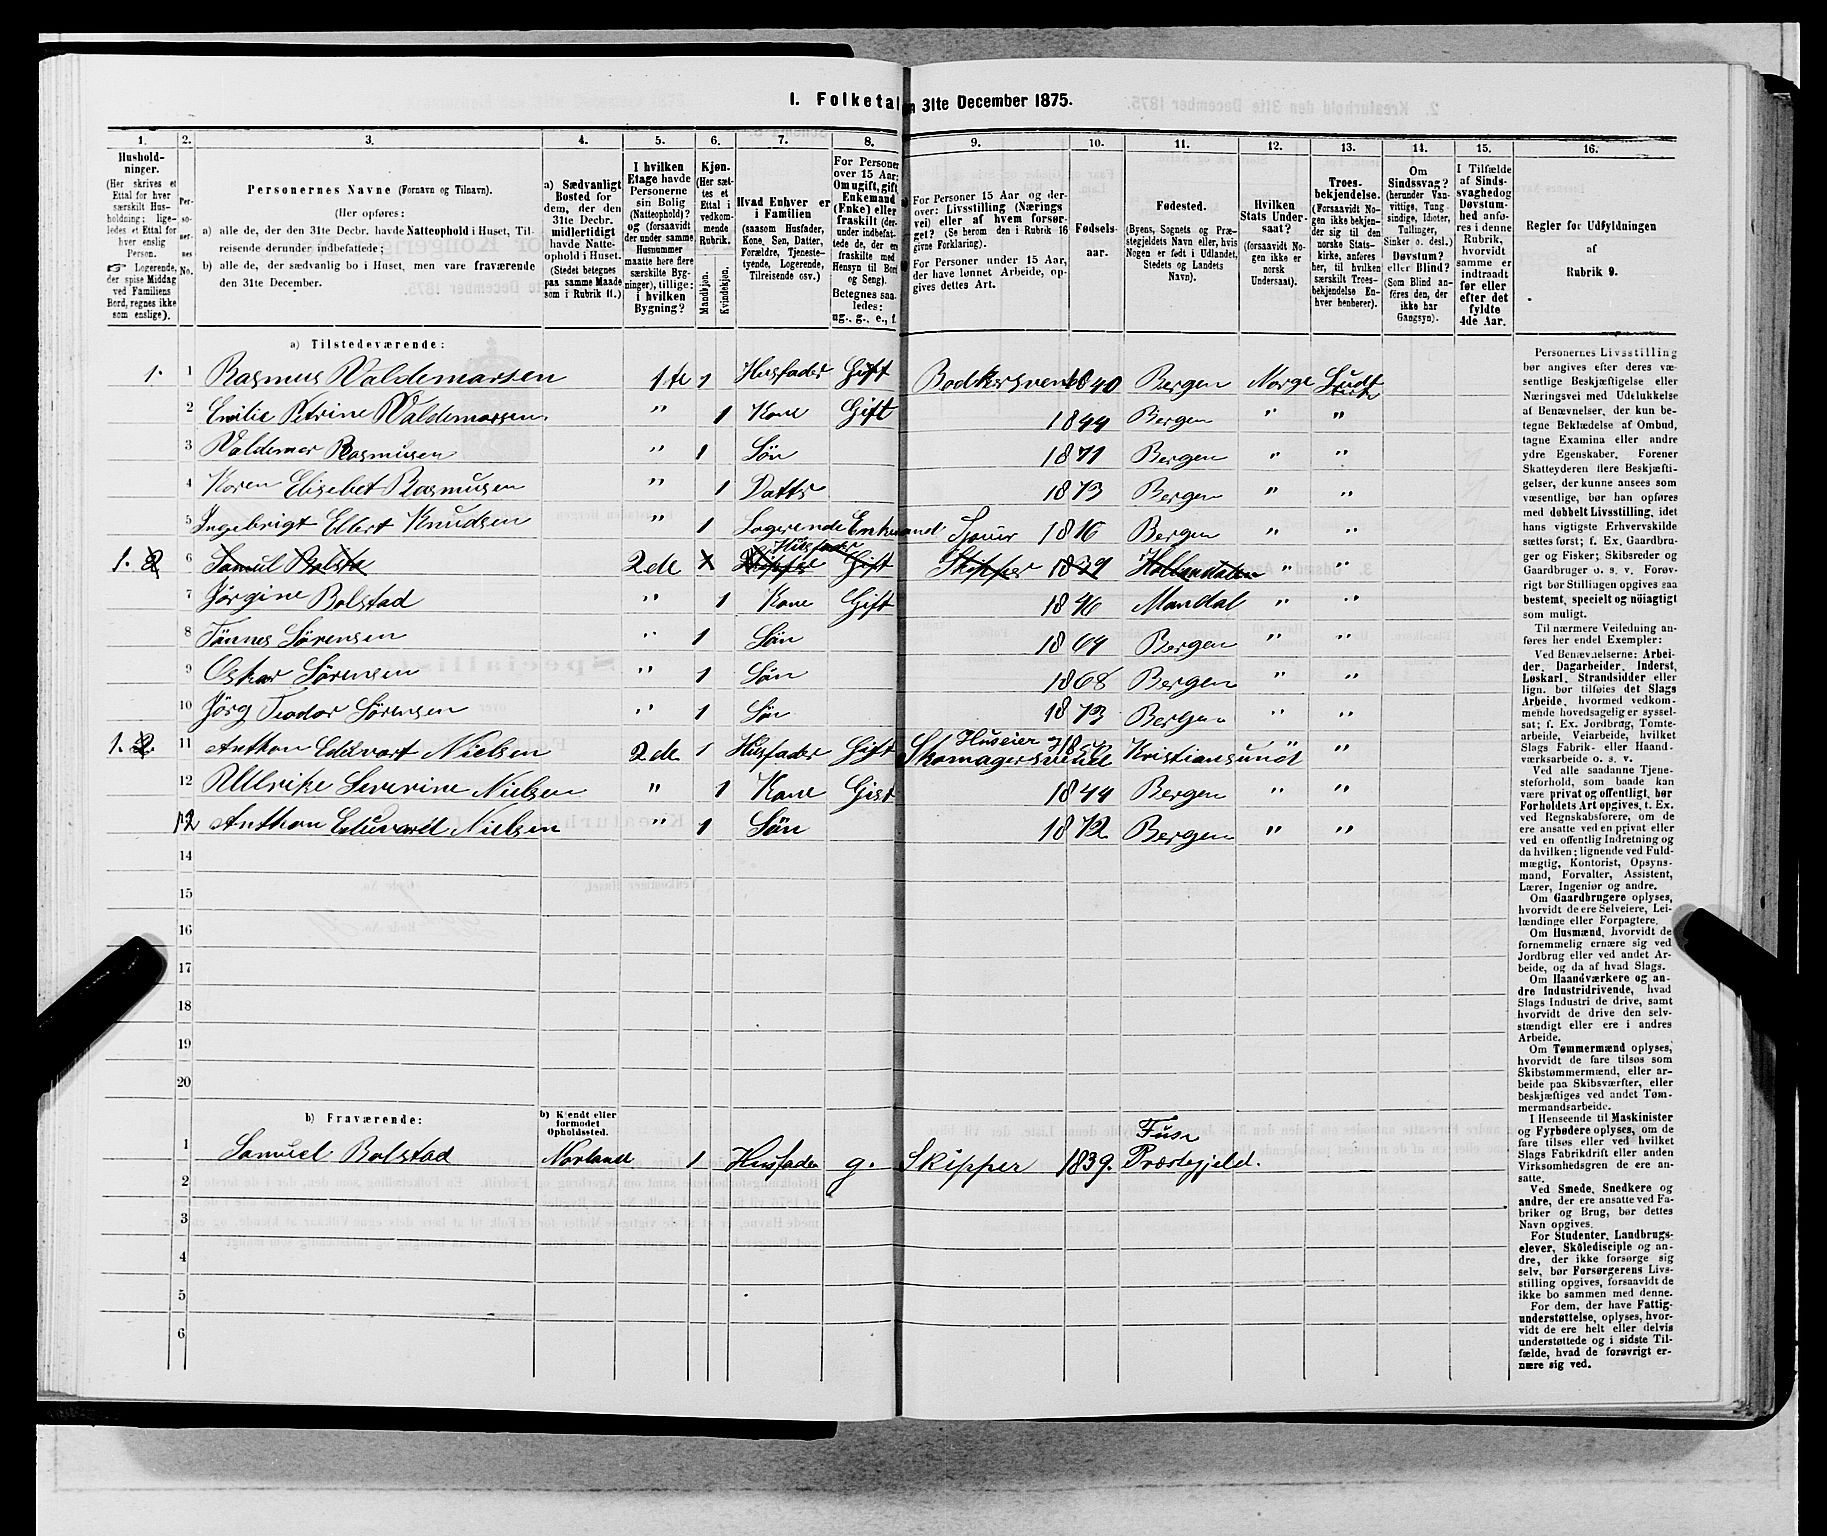 I. Folketal den 31te December 1875.
1. 2. 3. 4. 5. 6. 7. 8. 9. 10. 11. 12. 13. 14. 15. 16.
Hushold-
ninger.
(Her skrives et
Ettal for hver
særskilt Hus-
holdning; lige-
ledes et Ettal for
hver enslig
Person.
☞ Logerende,
der spise Middag
ved Familiens
Bord, regnes ikke
som enslige).
Per-
so-
ner-
nes
No.
Personernes Navne (Fornavn og Tilnavn).
(Her opføres:
a) alle de, der den 31te Decbr. havde Natteophold i Huset, Til-
reisende derunder indbefattede;
b) alle de, der sædvanlig bo i Huset, men vare fraværende
den 31te December.
a) Sædvanligt
Bosted for
dem, der den
31te Decbr.
midlertidigt
havde Natte-
ophold i Huset.
(Stedet betegnes
paa samme Maade
som i Rubrik 11.)
I hvilken
Etage havde
Personerne
sin Bolig
(Natteophold)?
og (forsaavidt
der under samme
Husnummer
maatte høre flere
særskilte Byg-
ninger), tillige:
i hvilken
Bygning?
Kjøn.
(Her sæt-
tes et
Ettal i
vedkom-
mende
Rubrik.
Mandkjøn.
Kvindekjøn.
Hvad Enhver er
i Familien
(saasom Husfader,
Kone, Søn, Datter,
Forældre, Tjeneste-
tyende, Logerende,
Tilreisende osv.)
For Personer
over 15 Aar:
Om ugift, gift,
Enkemand
(Enke) eller
fraskilt (der-
under indbefat-
tede de, der er
fraskilte med
Hensyn til Bord
og Seng).
Betegnes saa-
ledes:
ug., g., e., f.
For Personer 15 Aar og der-
over: Livsstilling (Nærings-
vei) eller af hvem forsør-
get? (Se herom den i Rubrik 16
givne Forklaring).
For Personer under 15 Aar,
der have lønnet Arbeide, op-
gives dettes Art.
Fødsels-
aar.
Fødested.
(Byens, Sognets og Præ-
stegjeldets Navn eller, hvis
Nogen er født i Udlandet,
Stedets og Landets
Navn).
Hvilken
Stats Under-
saat?
(forsaavidt No-
gen ikke er
norsk
Undersaat).
Troes-
bekjendelse.
(Forsaavidt No-
gen ikke bekjen-
der sig til den
norske Stats-
kirke, anføres
her, til hvilken
særskilt Troes-
bekjendelse En-
hver henhører).
Om
Sindssvag?
(herunder Van-
vittige, Tung-
sindige, Idioter,
Tullinger,
Sinker o. desl.)
Døvstum?
eller Blind?
(Som Blind an-
føres den, der
ikke har
Gangsyn).
I Tilfælde
af Sinds-
svaghed og
Døvstum-
hed anfø-
res i denne
Rubrik,
hvorvidt
samme er
indtraadt
før eller
efter det
fyldte
4de Aar.
Regler for Udfyldningen
af
Rubrik 9.
a) Tilstedeværende:
1. 1 Rasmus Valdemarsen 1te 1 Husfader Gift Bødkersvend 1840 Bergen Norge Luth
2 Emilie Petrine Valdemarsen " 1 Kone Gift 1844 Bergen " "
3 Valdemar Rasmusen " 1 Søn 1871 Bergen " "
4 Karen Elisebet Rasmusen " 1 Datts 1873 Bergen " "
5 Ingebrigt Ellert Knudsen " 1 Logerende Enkemand Sjouer 1816 Bergen " "
1. 2 6 Samuel Bolsta 2de 1 Skipper Husfader Gift Skipper 1839 " "
7 Jørgine Bolstad " 1 Kone Gift 1846 Mandal " "
8 Tønnes Sørensen " 1 Søn 1864 Bergen " "
9 Oskar Sørensen " 1 Søn 1868 Bergen " "
10 Jørg Teodor Sørensen " 1 Søn 1873 Bergen " "
1. 2. 11 Anthon Edevart Nielsen 2de 1 Husfader Gift Huseier og Skomagersvend Kristiansund " "
12 Ullrike Severine Nielsen " 1 Kone Gift 1844 Bergen " "
12 Anthon Eduvard Nielsen " 1 Søn 1872 Bergen " "
14
15
16
17
18
19
20
b) Fraværende:
b) Kjendt eller
formodet
Opholdssted.
1 Samuel Bolstad Norland 1 Husfader g. Skipper 1839. Fuse Præstegjeld.
2
3
4
5
6
Personernes Livsstilling
bør angives efter deres væ-
sentlige Beskjæftigelse eller
Næringsvei med Udelukkelse
af Benævnelser, der kun be-
tegne Beklædelse af Ombud,
tagne Examina eller andre
ydre Egenskaber. Forener
Skatteyderen flere Beskjæfti-
gelser, der kunne ansees som
væsentlige, bør han opføres
med dobbelt Livsstilling, idet
hans vigtigste Erhvervskilde
sættes først; f. Ex. Gaardbru-
ger og Fisker; Skibsreder og
Gaardbruger o. s. v. Forøv-
rigt bør Stillingen opgives saa
bestemt, specielt og nöiagtigt
som muligt.
Til nærmere Veiledning an-
føres her endel Exempler:
Ved Benævnelserne: Arbei-
der, Dagarbeider, Inderst,
Løskarl, Strandsidder eller
lign. bør tilføies det Slags
Arbeide, hvormed vedkom-
mende hovedsagelig er syssel-
sat; f. Ex. Jordbrug, Tomte-
arbeide, Veiarbeide, hvilket
Slags Fabrik- eller Haand-
værksarbeide o. s. v.
Ved alle saadanne Tjene-
steforhold, som baade kan
være privat og offentligt, bør
Forholdets Art opgives, t. Ex.
ved Regnskabsførere, om de
ere ansatte ved en privat eller
ved en offentlig Indretning og
da hvilken; lignende ved Fuld-
mægtig, Kontorist, Opsyns-
mand, Forvalter, Assistent,
Lærer, Ingeniør og andre.
Om Gaardbrugere oplyses,
hvorvidt de ere Selveiere, Lei-
lændinge eller Forpagtere.
Om Husmænd, hvorvidt de
fornemmelig ernære sig ved
Jordbrug eller ved andet Ar-
beide, og da af hvad Slags.
Om Haandværkere og an-
dre Industridrivende, hvad
Slags Industri de drive, samt
hvorvidt de drive den selv-
stændigt eller ere i andres
Arbeide.
Om Tømmermænd oplyses,
hvorvidt de fare tilsøs som
Skibstømmermænd, eller ar-
beide paa Skibsværfter, eller
beskjæftiges ved andet Tøm-
mermandsarbeide.
I Henseende til Maskinister
og Fyrbødere oplyses, om de
fare tilsøs eller ved hvilket
Slags Fabrikdrift eller anden
Virksomhedsgren de ere an-
satte.
Ved Smede, Snedkere og
andre, der ere ansatte ved Fa-
briker og Brug, bør dettes
Navn opgives.
For Studenter, Landbrugs-
elever, Skoledisciple og an-
dre, der ikke forsørge sig
selv, bør Forsørgerens Livs-
stilling opgives, forsaavidt de
ikke bo sammen med denne.
For dem, der have Fattig-
understøttelse, oplyses, hvor-
vidt de ere helt eller delvis
understøttede og i sidste Til-
fælde, hvad de forøvrigt er-
nære sig ved.